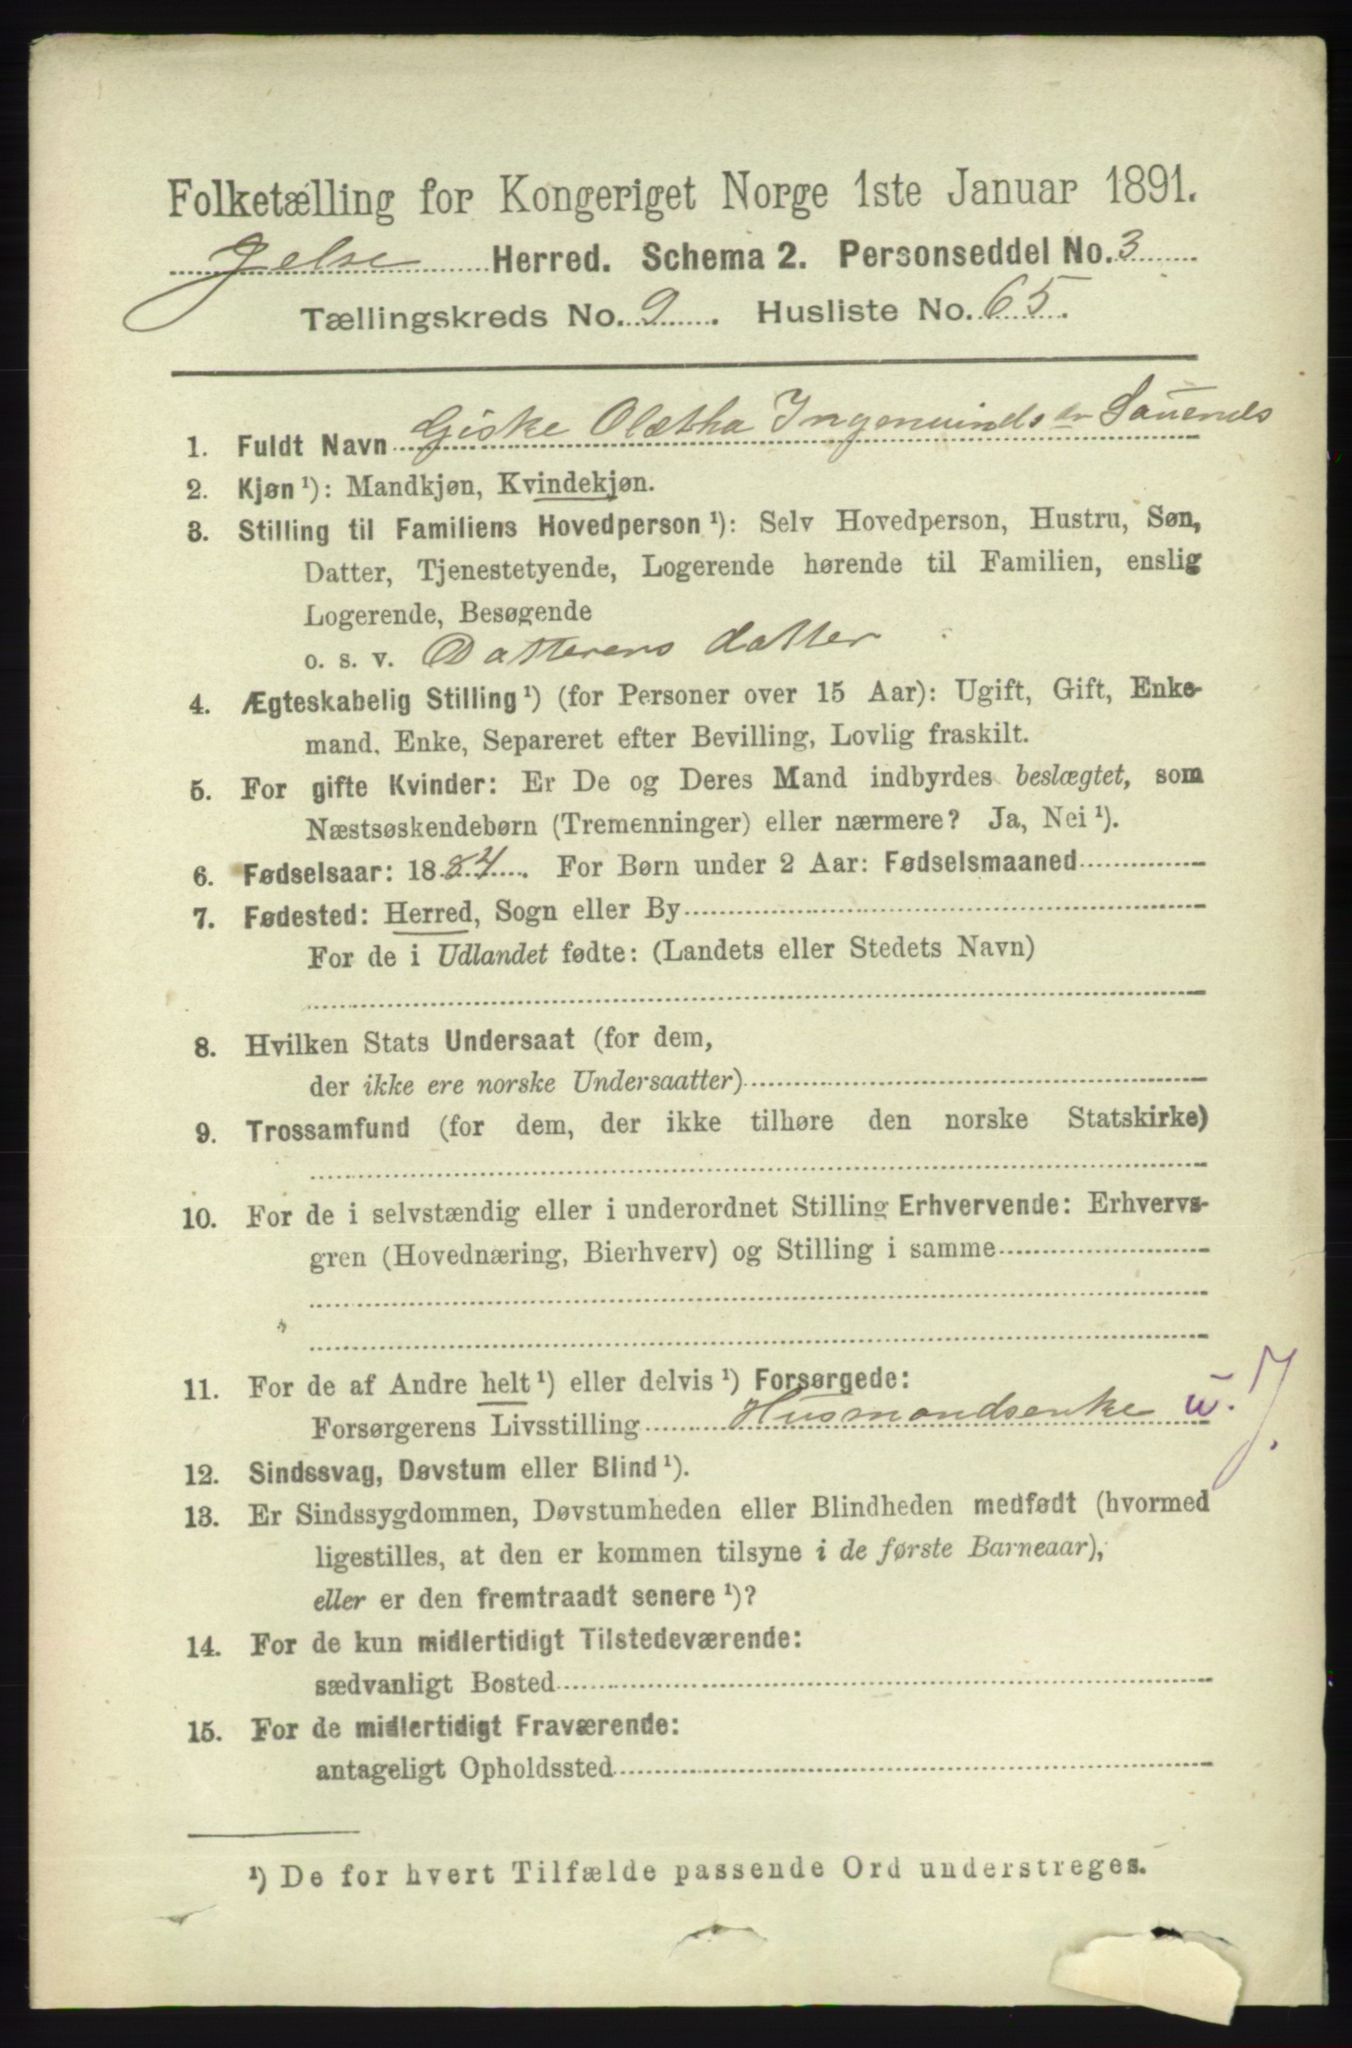 Folketælling for Kongeriget Norge 1ste Januar 1891.
Jelse Herred. Schema 2. Personseddel No. 3
Tællingskreds No. 9. Husliste No. 65.
1. Fuldt Navn Giske Oletha Ingemundsdr
2. Kjøn ¹): Mandkjøn, Kvindekjøn.
3. Stilling til Familiens Hovedperson ¹): Selv Hovedperson, Hustru, Søn,
Datter, Tjenestetyende, Logerende hørende til Familien, enslig
Logerende, Besøgende
o. s. v. Datterens datter
4. Ægteskabelig Stilling ¹) (for Personer over 15 Aar): Ugift, Gift, Enke-
mand, Enke, Separeret efter Bevilling, Lovlig fraskilt.
5. For gifte Kvinder: Er De og Deres Mand indbyrdes beslægtet, som
Næstsøskendebørn (Tremenninger) eller nærmere? Ja, Nei ¹).
6. Fødselsaar: 1884. For Børn under 2 Aar: Fødselsmaaned
7. Fødested: Herred, Sogn eller By
For de i Udlandet fødte: (Landets eller Stedets Navn)
8. Hvilken Stats Undersaat (for dem,
der ikke ere norske Undersaatter)
9. Trossamfund (for dem, der ikke tilhøre den norske Statskirke)
10. For de i selvstændig eller i underordnet Stilling Erhvervende: Erhvervs-
gren (Hovednæring, Bierhverv) og Stilling i samme
11. For de af Andre helt ¹) eller delvis ¹) Forsørgede:
Forsørgerens Livsstilling Husmandsenke u. J.
12. Sindssvag, Døvstum eller Blind ¹).
13. Er Sindssygdommen, Døvstumheden eller Blindheden medfødt (hvormed
ligestilles, at den er kommen tilsyne i de første Barneaar),
eller er den fremtraadt senere ¹)?
14. For de kun midlertidigt Tilstedeværende:
sædvanligt Bosted
15. For de midlertidigt Fraværende:
antageligt Opholdssted
¹) De for hvert Tilfælde passende Ord understreges.